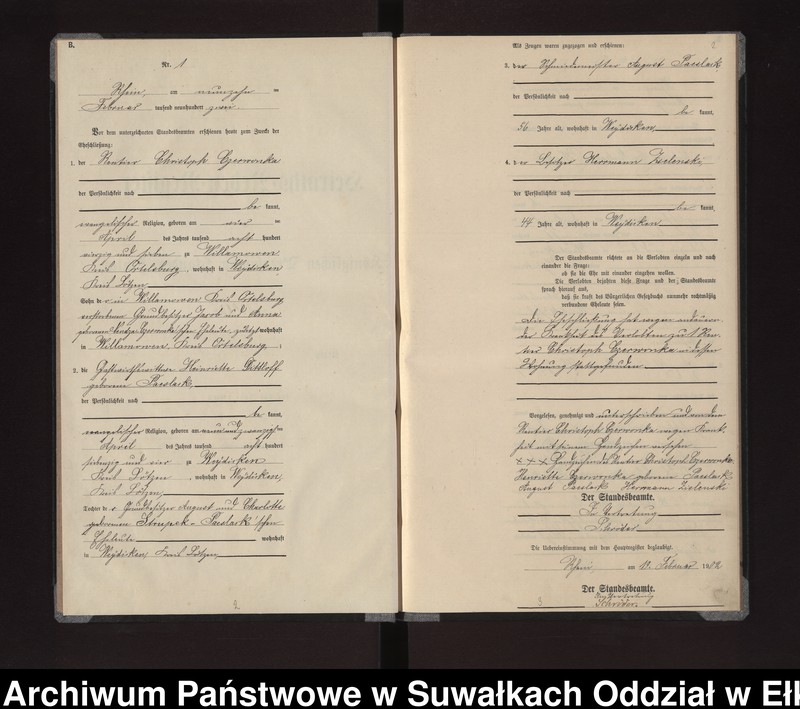 B.
Nr. 1
Rhein, am neunzehn ten
Februar tausend neunhundert zwei
Vor dem unterzeichneten Standesbeamten erschienen heute zum Zwecke der
Eheschließung:
1. der Rentier Christoph Czerwonka
der Persönlichkeit nach
be kannt,
evangelischer Religion, geboren am vier ten
April des Jahres tausend acht hundert
vierzig und sieben zu Willamowen
Kreis Ortelsburg, wohnhaft in Woydirken
Kreis Lötzen
Sohn der in Willamowen Kreis Ortelsburg
verstorbenen Grundbesitzer Jacob und Anna
geborenen Czerwonka'schen Eheleute, zuletzt wohnhaft
in Willamowen, Kreis Ortelsburg;
2. die Gastwirthswittwe Heinriette Dittloff
geborene Paeslack
der Persönlichkeit nach
be kannt,
evangelischer Religion, geboren am neun und zwanzigsten
April des Jahres tausend acht hundert
siebenzig und vier zu Woydirken
Kreis Lötzen, wohnhaft in Woydirken,
Kreis Lötzen
Tochter der Grundbesitzer August und Charlotte
geborenen - Paeslack'schen
Eheleute wohnhaft
in Woydirken, Kreis Lötzen
2
Als Zeugen waren zugezogen und erschienen:
2
3. der Schmiedemeister August Paeslack
der Persönlichkeit nach
be kannt,
56 Jahre alt, wohnhaft in Woydirken
4. der Besitzer Herrmann Zielenski
der Persönlichkeit nach
be kannt,
44 Jahre alt, wohnhaft in Woydirken
Der Standesbeamte richtete an die Verlobten einzeln und nach
einander die Frage:
ob sie die Ehe mit einander eingehen wollen.
Die Verlobten bejahten diese Frage und der Standesbeamte
sprach hierauf aus,
daß sie kraft des Bürgerlichen Gesetzbuchs nunmehr rechtmäßig
verbundene Eheleute seien.
Die Eheschließung hat wegen andauern-
der Krankheit des Verlobten zu 1 Ren-
tier Christoph Czerwonka in dessen
Wohnung stattgefunden
Vorgelesen, genehmigt und unterschrieben und von dem
Rentier Christoph Czerwonka wegen Krank-
heit mit seinem Handzeichen versehen
+ + + Handzeichen des Rentier Christoph Czerwonka
Henriette Czerwonka geborene Paeslack
August Paeslack Hermann Zielenski
Der Standesbeamte.
In Vertretung
Schröder
Die Uebereinstimmung mit dem Hauptregister beglaubigt.
Rhein, am 19. Februar 1902
Der Standesbeamte.
In Vertretung
Schröder
3
Archiwum Państwowe w Suwałkach Oddział w Ełk